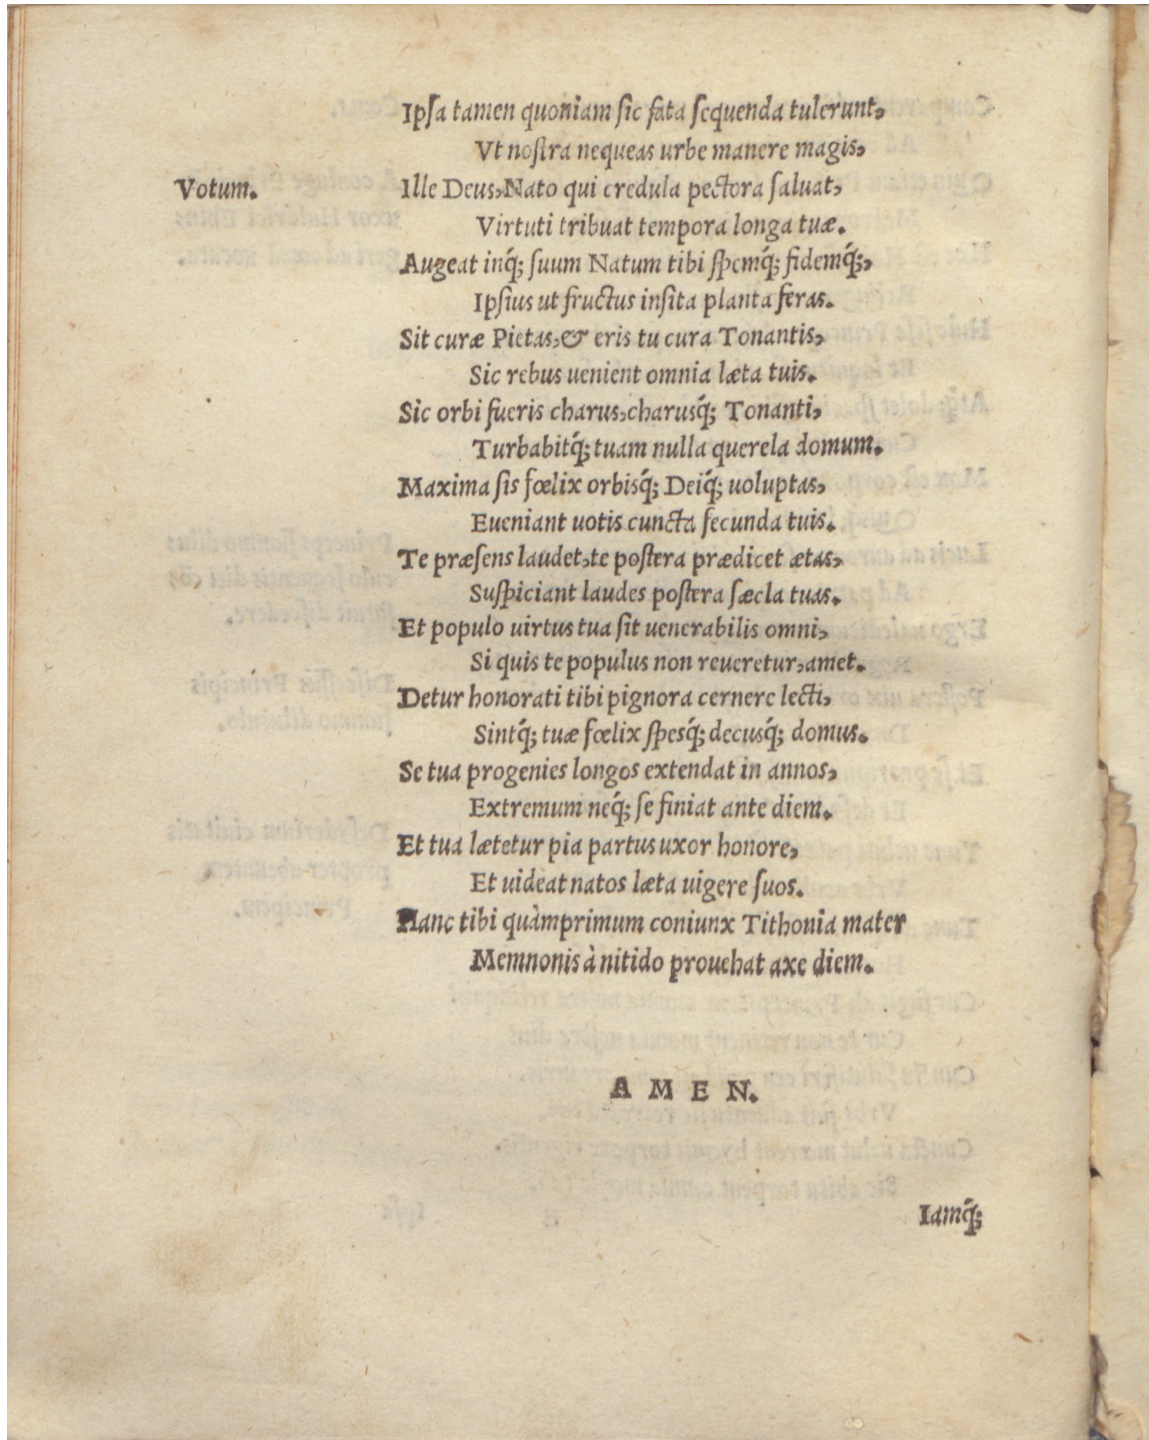 Ipſa tamen quoniam ſic fata ſequenda tulerunt,
Vt noſtra nequeas urbe manere magis,
Votum. Ille Deus, Nato qui credula pectora ſaluat,
Virtuti tribuat tempora longa tuæ.
Augeat inq́; ſuum Natum tibi ſpemq́; fidemq́;,
Ipſius ut fructus inſita planta feras.
Sit curæ Pietas, & eris tu cura Tonantis,
Sic rebus uenient omnia læta tuis.
Sic orbi fueris charus, charusq́; Tonanti,
Turbabitq́; tuam nulla querela domum.
Maxima ſis fœlix orbisq́; Deiq́; uoluptas,
Eueniant uotis cuncta ſecunda tuis.
Te præſens laudet, te poſtera prædicet ætas,
Suſpiciant laudes poſtera ſæcla tuas.
Et populo uirtus tua ſit uenerabilis omni,
Si quis te populus non reueretur, amet.
Detur honorati tibi pignora cernere lecti,
Sintq́; tuæ fœlix ſpesq́; decusq́; domus.
Se tua progenies longos extendat in annos,
Extremum neq́; ſe finiat ante diem.
Et tua lætetur pia partus uxor honore,
Et uideat natos læta uigere ſuos.
Hanc tibi quàmprimum coniunx Tithonia mater
Memnonis à nitido prouehat axe diem.
AMEN.
Iamq́;